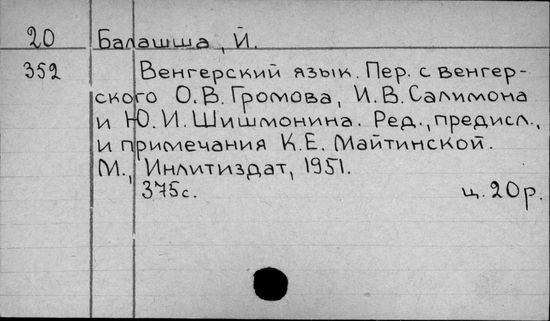 20 Балашша, Й.
352 Венгерский язык. Пер. с венгер-
ского О.В. Громова, И.В. Салимона
и Ю.И. Шишмонина. Ред., предисл.,
и примечания К.Е. Майтинской.
М., Инлитиздат, 1951.
375с. ц. 20р.